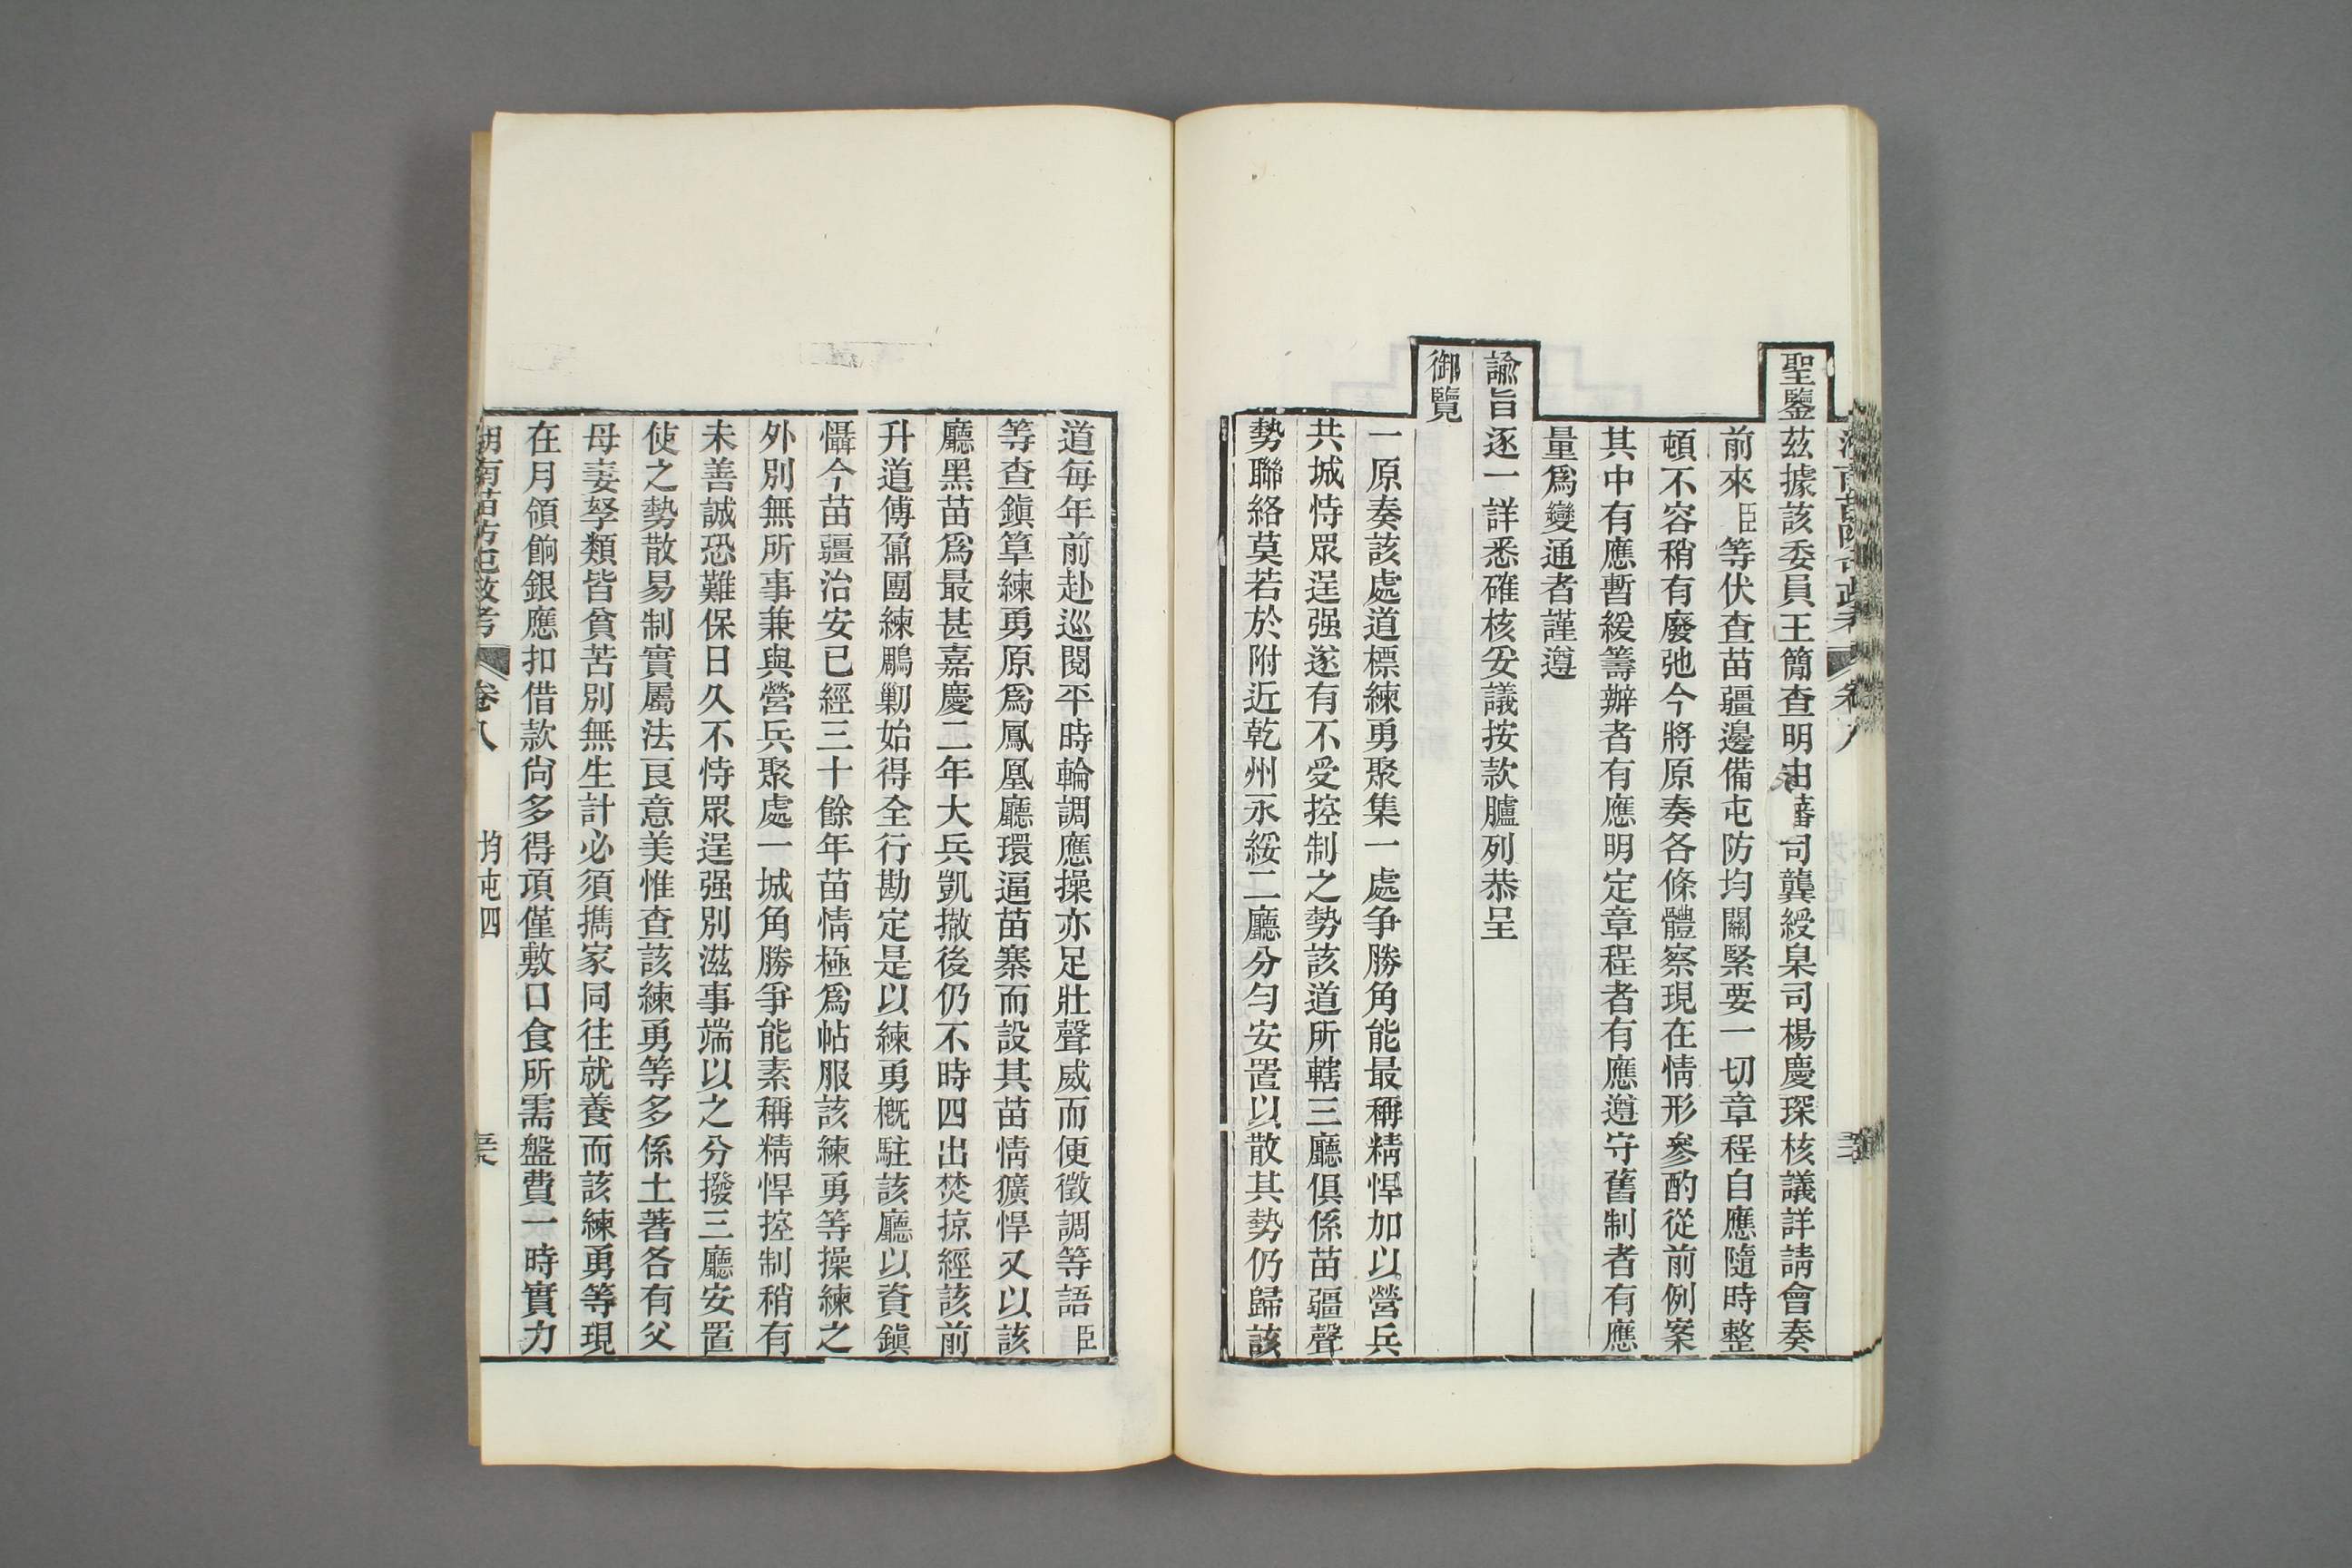 聖鑒茲據該委員王簡查明由藩司龔綬臬司楊慶琛核議詳請會奏
前來臣等伏查苗疆邊備屯防均關緊要一切章程自應隨時整
頓不容稍有廢弛今將原奏各條體察現在情形參酌從前例案
其中有應暫緩籌辦者有應明定章程者有應遵守舊制者有應
量爲變通者謹遵
諭旨逐一詳悉確核妥議按款臚列恭呈
御覽
一原奏該處道標練勇聚集一處爭勝角能最稱精悍加以營兵
共城恃眾逞强遂有不受控制之勢該道所轄三廳俱係苗疆聲
勢聯絡莫若於附近乾州永綏二廳分勻安置以散其勢仍歸該
道每年前赴巡閱平時輪調應操亦足壯聲威而便徵調等語臣
等查鎭筸練勇原爲鳳凰廳環逼苗寨而設其苗情獷悍又以該
廳黑苗爲最甚嘉慶二年大兵凱撤後仍不時四出焚掠經該前
升道傅鼐團練鵰勦始得全行勘定是以練勇概駐該廳以資鎭
懾今苗疆治安已經三十餘年苗情極爲帖服該練勇等操練之
外別無所事兼與營兵聚處一城角勝爭能素稱精悍控制稍有
未善誠恐難保日久不恃眾逞强別滋事端以之分撥三廳安置
使之勢散易制實屬法良意美惟查該練勇等多係土著各有父
母妻孥類皆貧苦別無生計必須攜家同往就養而該練勇等現
在月領餉銀應扣借款尙多得項僅敷口食所需盤費一時實力
湖南苗防屯政考 卷八 均屯四